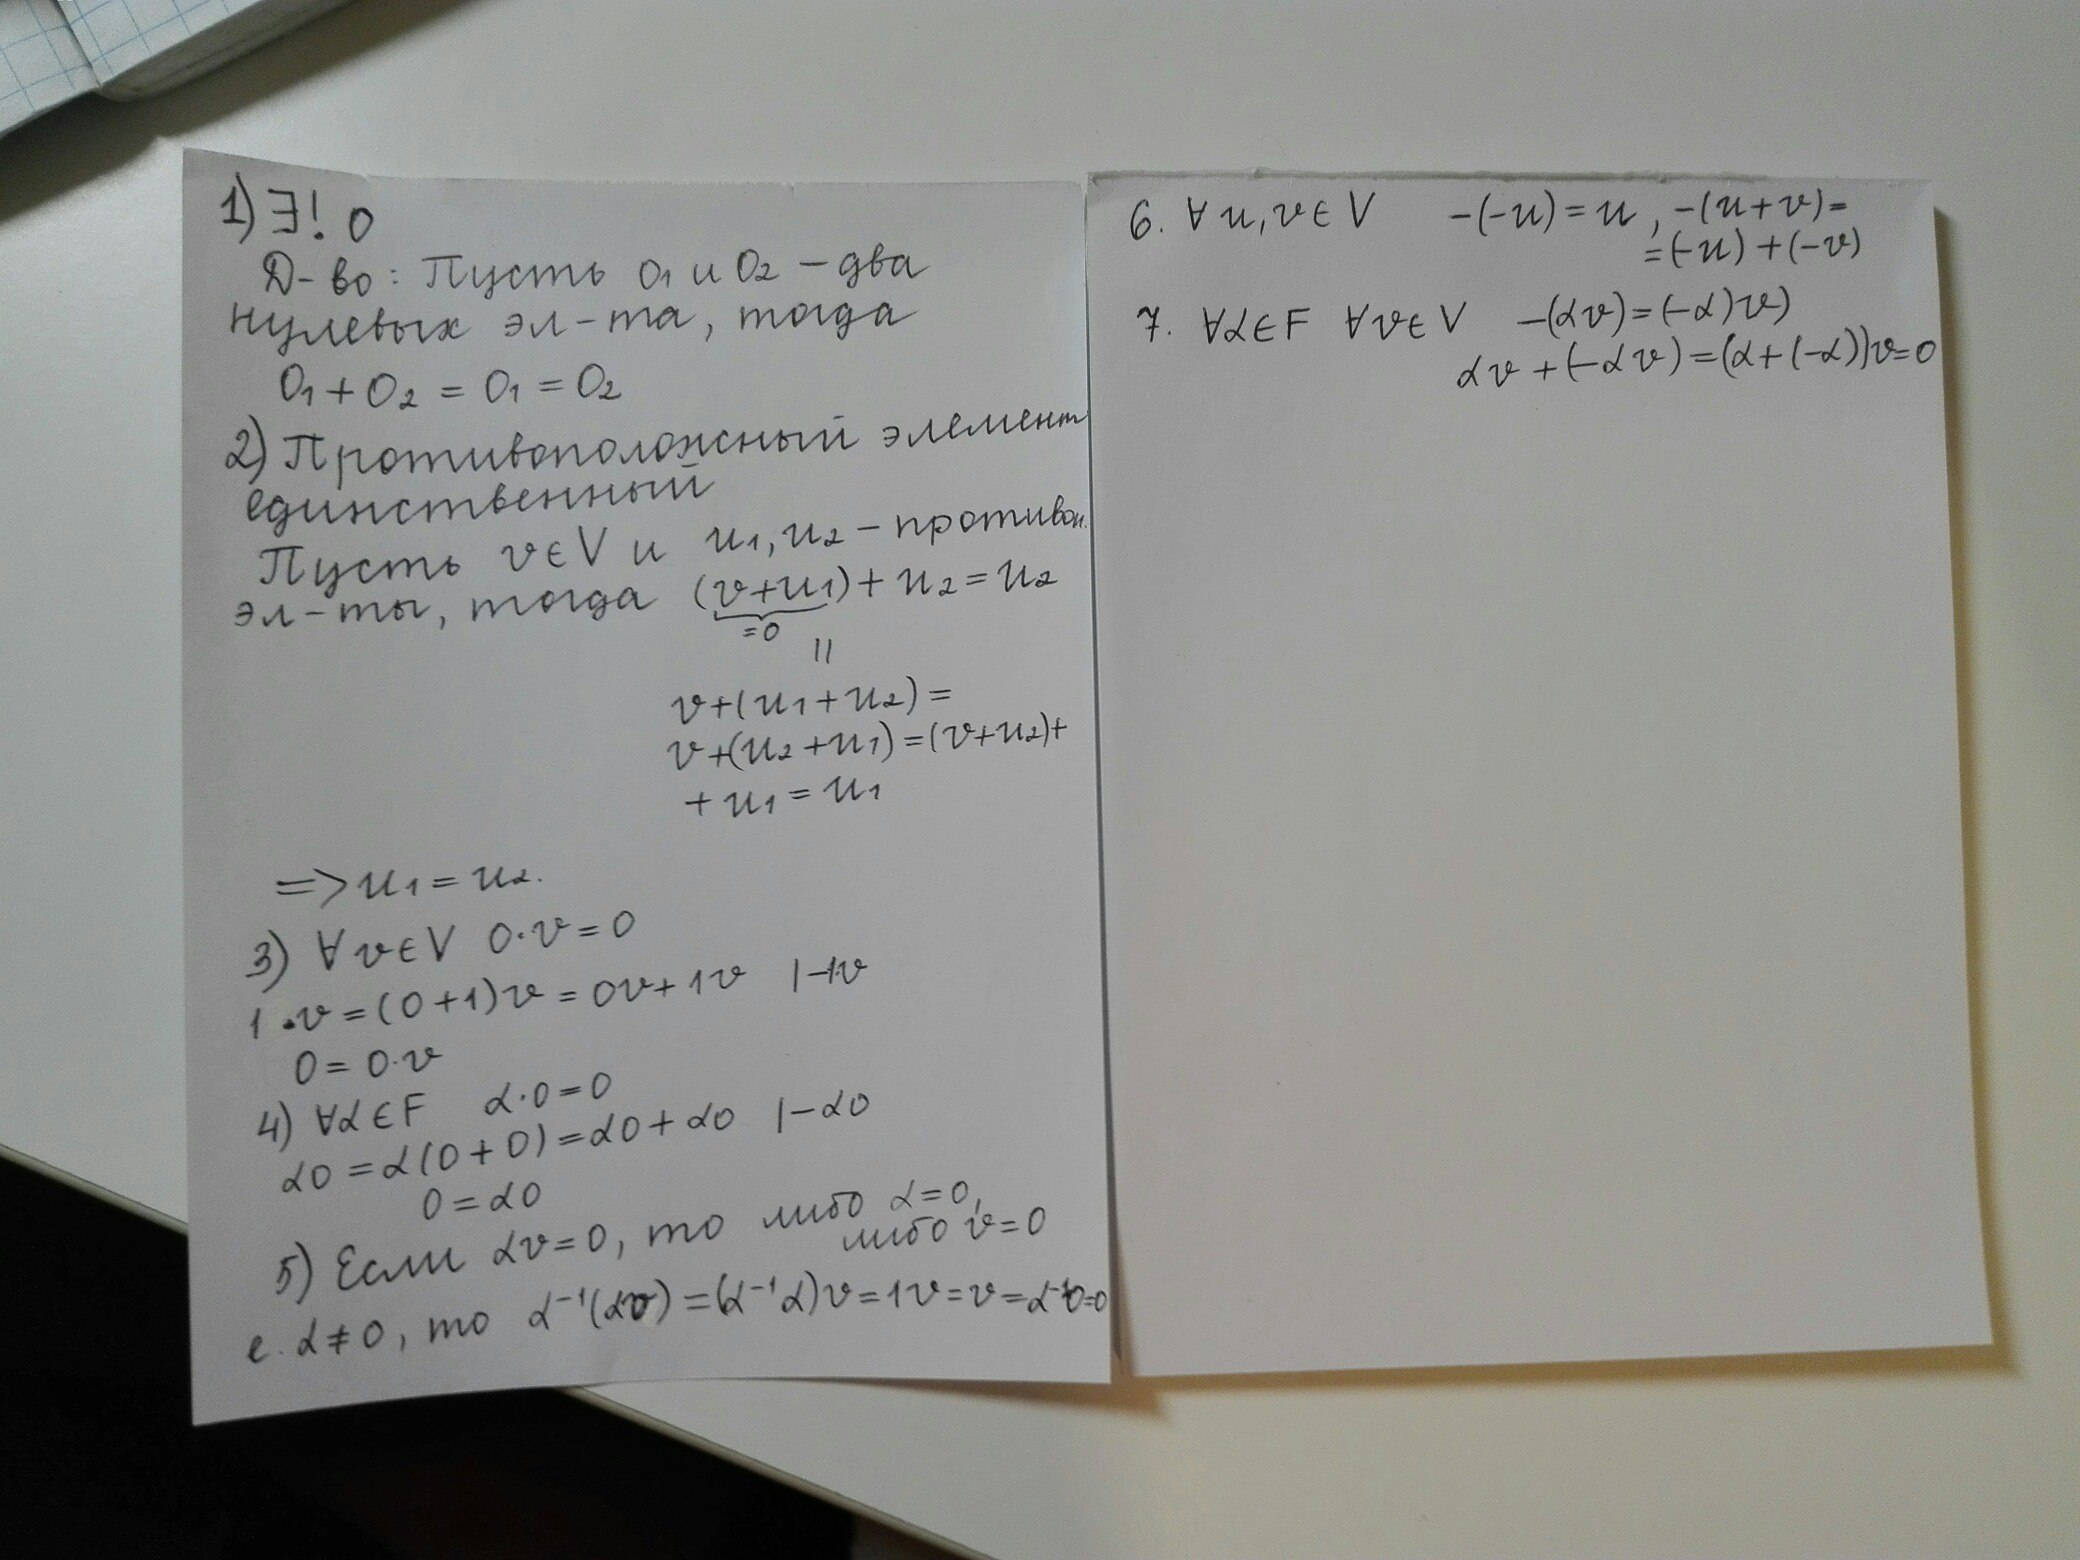 1) ∃! 0
Д-во: Пусть 0₁ и 0₂ – два
нулевых эл-та, тогда
0₁ + 0₂ = 0₁ = 0₂
2) Противоположный элемент
единственный
Пусть v ∈ V и u₁, u₂ – противоп.
эл-ты, тогда (v+u₁) + u₂ = u₂
=0
||
v+(u₁+u₂) =
v+(u₂+u₁) = (v+u₂)+
+ u₁ = u₁
=> u₁ = u₂.
3) ∀ v ∈ V 0·v = 0
1·v = (0+1)v = 0v + 1v |-1v
0 = 0·v
4) ∀α ∈ F α·0 = 0
α0 = α(0+0) = α0 + α0 |-α0
0 = α0
5) Если αv = 0, то либо α = 0,
либо v = 0
е. α ≠ 0, то α⁻¹(αv) = (α⁻¹α)v = 1v = v = α⁻¹0=0
6. ∀ u, v ∈ V -(-u) = u, -(u+v) =
= (-u) + (-v)
7. ∀α ∈ F ∀v ∈ V -(αv) = (-α)v)
αv + (-αv) = (α+(-α))v = 0